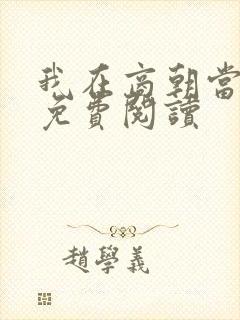 我在高朝當
免費閱讀
趙學義